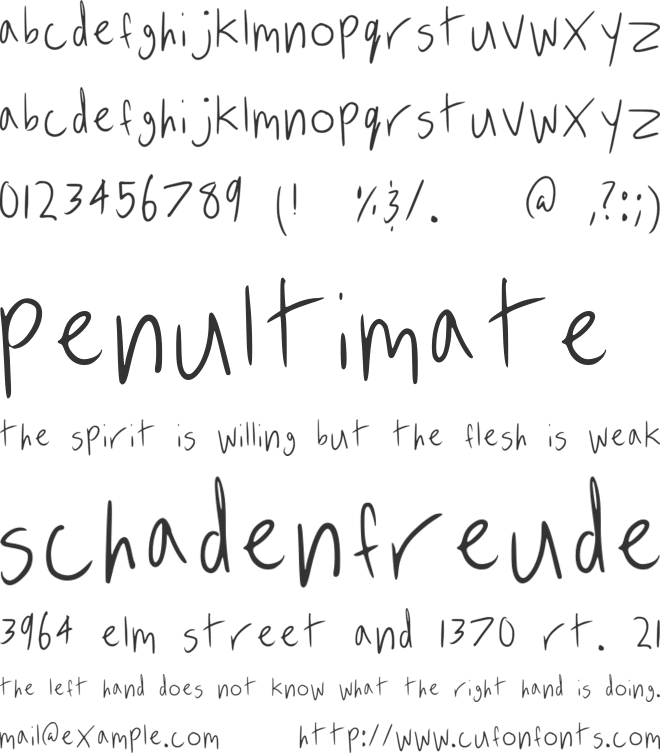 abcdefghijklmnopqrstuvwxyz
abcdefghijklmnopqrstuvwxyz
0123456789 (! %&/. @ ,?:;)
penultimate
the spirit is willing but the flesh is weak
schadenfreude
3964 elm street and 1370 rt. 21
the left hand does not know what the right hand is doing.
mail@example.com http://www.cufonfonts.com